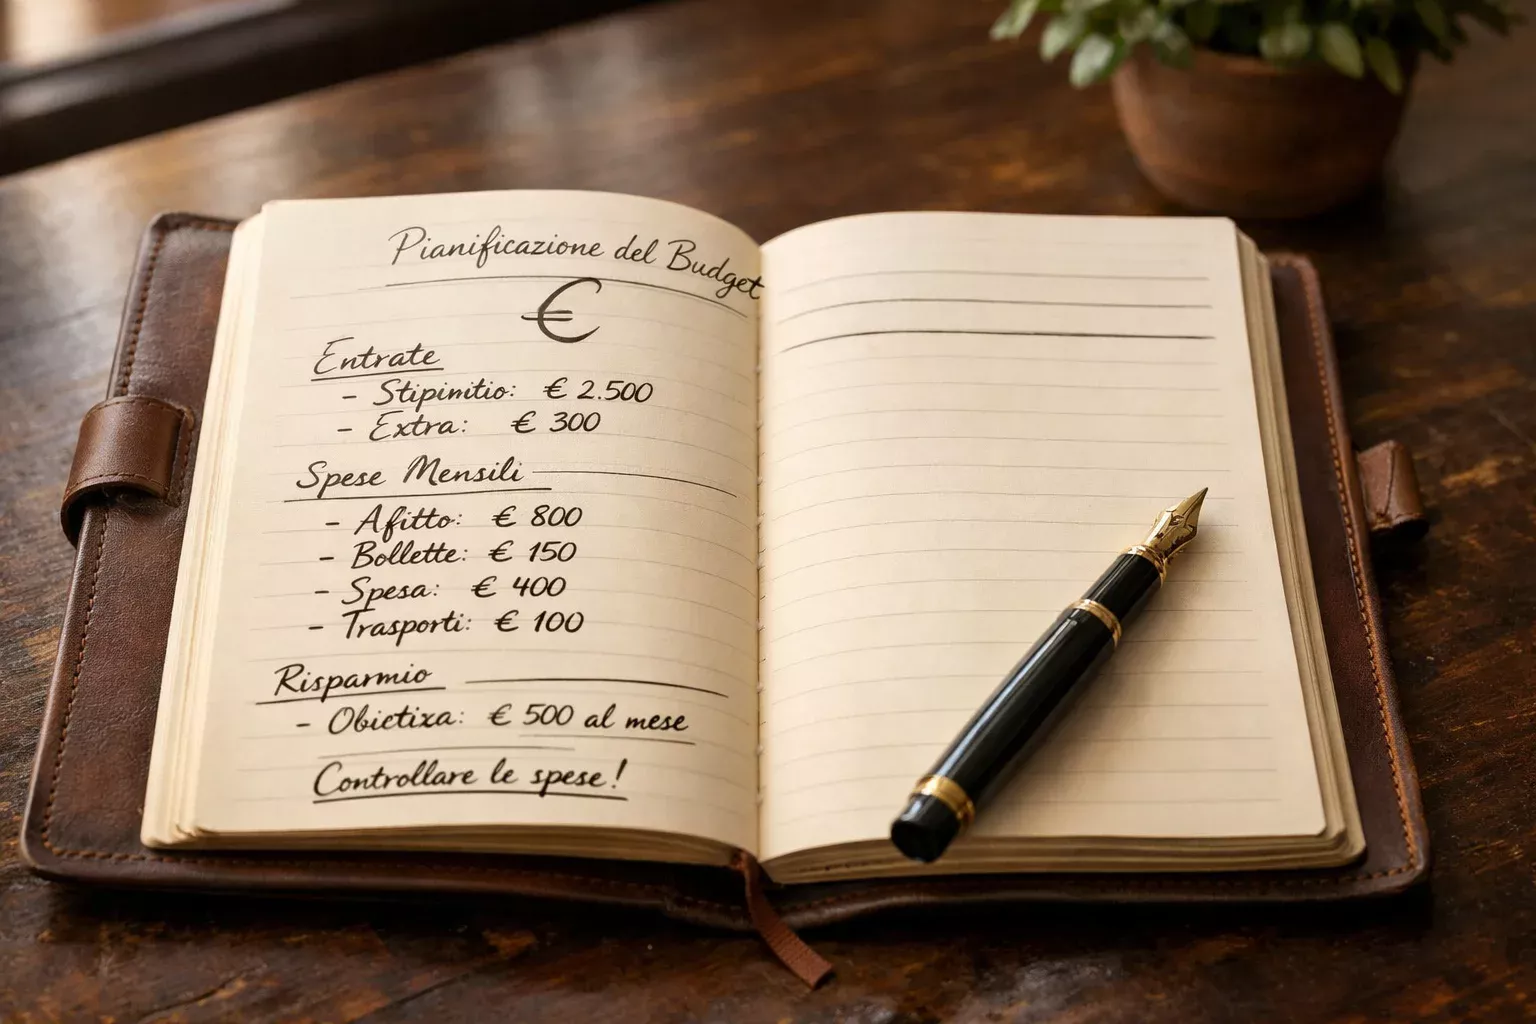 Pianificazione del Budget
€
Entrate
- Stipinitio: € 2.500
- Extra: € 300
Spese Mensili
- Afitto: € 800
- Bollette: € 150
- Spesa: € 400
- Trasporti: € 100
Risparmio
- Obictixa: € 500 al mese
Controllare le spese!